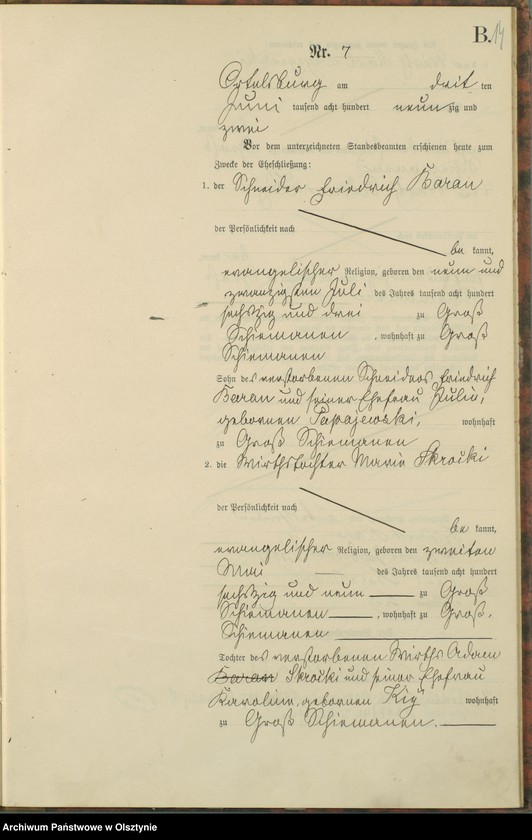 B. 14
Nr. 7
Ortelsburg am drit ten
Juni tausend acht hundert neun zig und
zwei
Vor dem unterzeichneten Standesbeamten erschienen heute zum
Zwecke der Eheschließung:
1. der Schneider Friedrich Baran
der Persönlichkeit nach
be kannt,
evangelischer Religion, geboren den neun und
zwanzigsten Juli des Jahres tausend acht hundert
sechszig und drei zu Groß
Schiemanen, wohnhaft zu Groß
Schiemanen
Sohn des verstorbenen Schneiders Friedrich
Baran und seiner Ehefrau Julie,
geborenen Papajewski, wohnhaft
zu Groß Schiemanen
2. die Wirthstochter Marie Skrocki
der Persönlichkeit nach
be kannt,
evangelischer Religion, geboren den zweiten
Mai des Jahres tausend acht hundert
sechszig und neun zu Groß
Schiemanen, wohnhaft zu Groß.
Schiemanen
Tochter des verstorbenen Wirths Adam
Baran Skrocki und seiner Ehefrau
Karoline, geborenen Kiy wohnhaft
zu Groß Schiemanen.
Archiwum Państwowe w Olsztynie